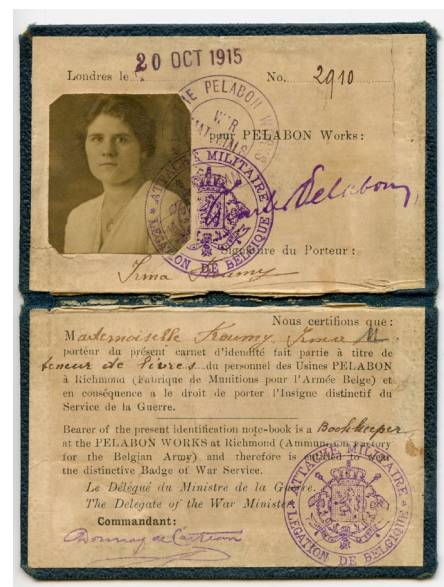 20 OCT 1915
Londres le
No. 2910
PELABON WORKS
WAR MATERIALS
pour PELABON Works:
Pelabon
ATTACHÉ MILITAIRE
LEGATION DE BELGIQUE
Signature du Porteur:
Irma
Nous certifions que:
Mademoiselle Irma
porteur du présent carnet d'identité fait partie à titre de
teneur de livres du personnel des Usines PELABON
à Richmond (Fabrique de Munitions pour l'Armée Belge) et
en conséquence a le droit de porter l'Insigne distinctif du
Service de la Guerre.
Bearer of the present identification note-book is a Bookkeeper
at the PELABON WORKS at Richmond (Ammunition Factory
for the Belgian Army) and therefore is entitled to wear
the distinctive Badge of War Service.
Le Délégué du Ministre de la Guerre.
The Delegate of the War Minister
Commandant:
ATTACHÉ MILITAIRE
LEGATION DE BELGIQUE